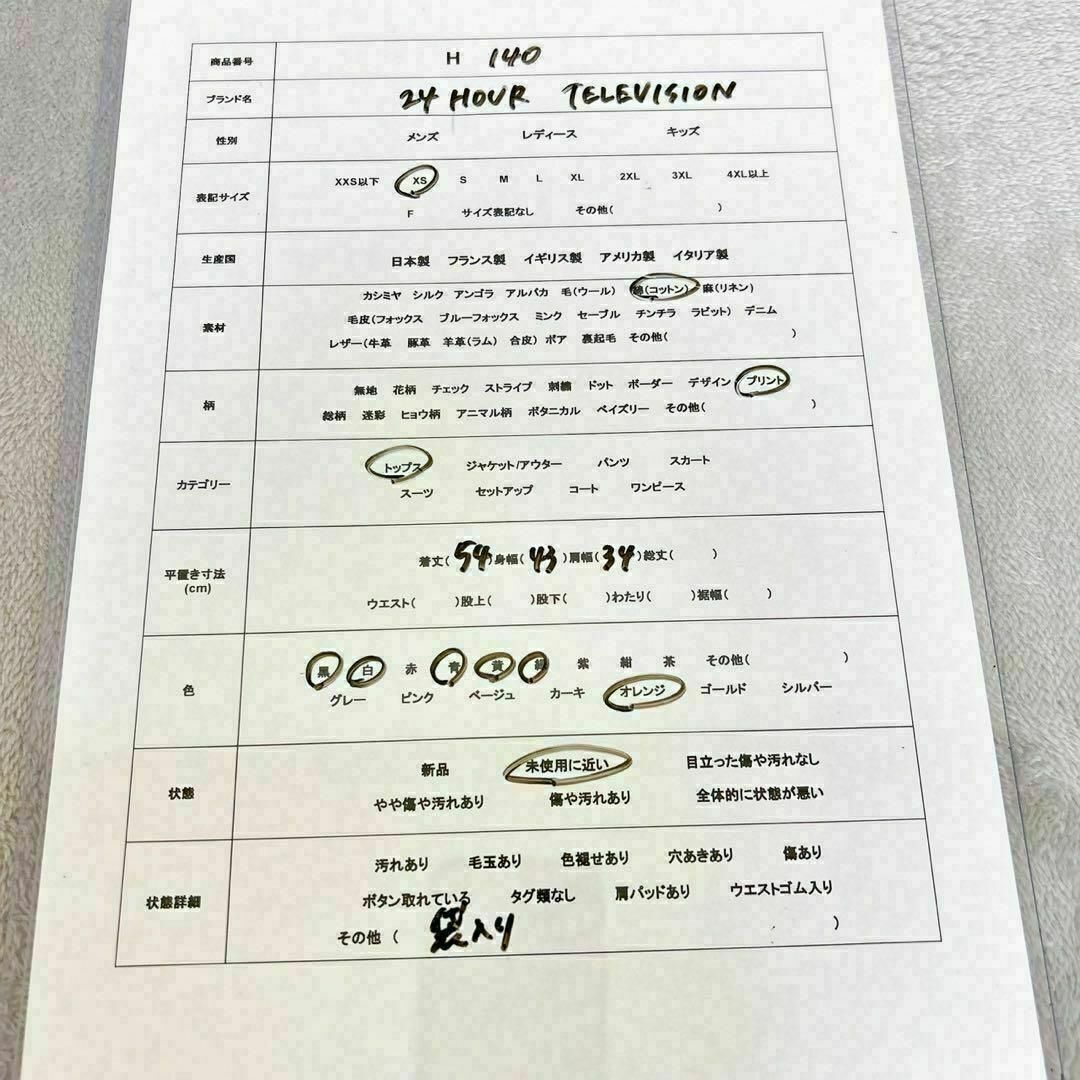 商品番号 H 140
ブランド名 24 HOUR TELEVISION
性別 メンズ レディース キッズ
表記サイズ XXS以下 XS S M L XL 2XL 3XL 4XL以上
F サイズ表記なし その他( )
生産国 日本製 フランス製 イギリス製 アメリカ製 イタリア製
素材 カシミヤ シルク アンゴラ アルパカ 毛(ウール) 綿(コットン) 麻(リネン)
毛皮(フォックス ブルーフォックス ミンク セーブル チンチラ ラビット) デニム
レザー(牛革 豚革 羊革(ラム) 合皮) ボア 裏起毛 その他( )
柄 無地 花柄 チェック ストライプ 刺繍 ドット ボーダー デザイン プリント
総柄 迷彩 ヒョウ柄 アニマル柄 ボタニカル ペイズリー その他( )
カテゴリー トップス ジャケット/アウター パンツ スカート
スーツ セットアップ コート ワンピース
平置き寸法 (cm) 着丈( 54 )身幅( 43 )肩幅( 34 )総丈( )
ウエスト( )股上( )股下( )わたり( )裾幅( )
色 黒 白 赤 青 黄 緑 紫 紺 茶 その他( )
グレー ピンク ベージュ カーキ オレンジ ゴールド シルバー
状態 新品 未使用に近い 目立った傷や汚れなし
やや傷や汚れあり 傷や汚れあり 全体的に状態が悪い
状態詳細 汚れあり 毛玉あり 色褪せあり 穴あきあり 傷あり
ボタン取れている タグ類なし 肩パッドあり ウエストゴム入り
その他 ( 袋入り )